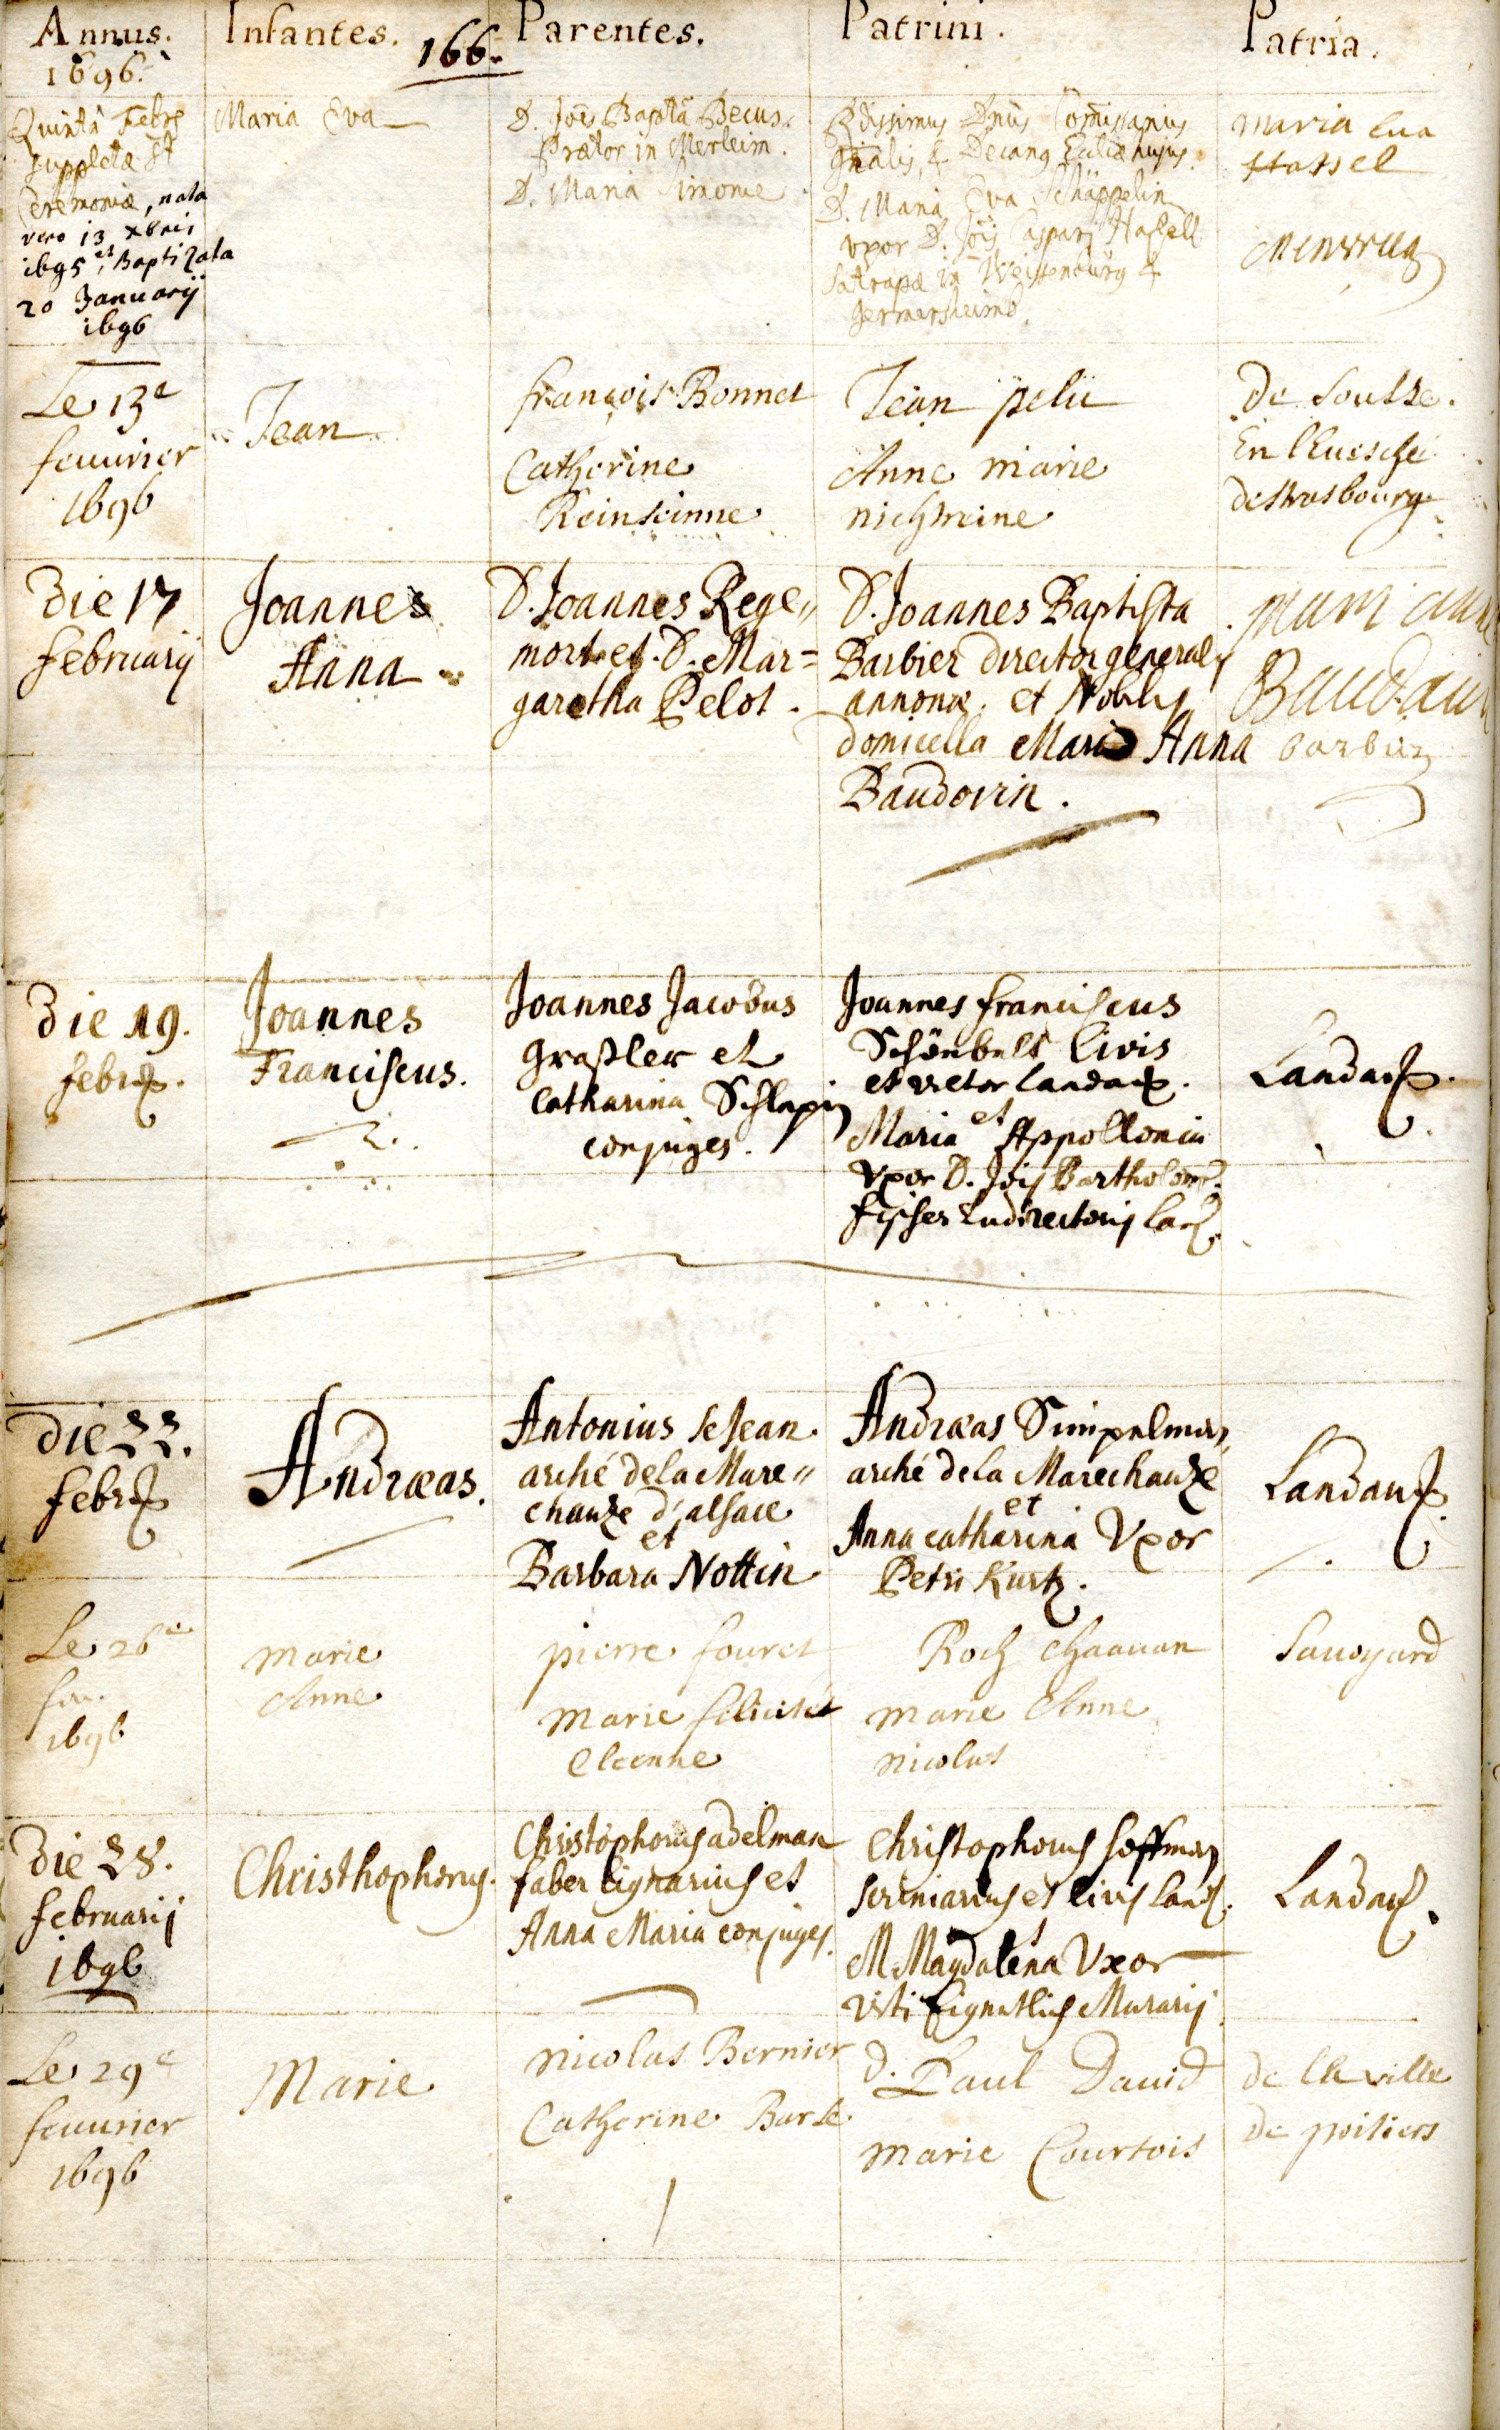 Annus. Infantes. 166. Parentes. Patrini. Patria.
1696.
Quintâ Febr
suppletæ St
Ceremoniæ, nata
vero 13 xbris
1695 et Baptizata
20 Januarij
1696
Maria Eva
D. Joës Baptã Becus.
Prætor in Merleim.
D. Maria Simonie
Rdissimus Dnus Comissarius
gnalis, & Decanq Eccliæ hujus.
D. Maria Eva Schäppelin
vxor D. Jois Caspari Hassell
Satrapæ in Weissenburg &
Germersheimb.
maria Eua
Hassel
Le 13e
feuurier
1696
Jean
françois Bonnet
Catherine
Reinseinne
Jean pelü
Anne marie
De Soultze.
En l'Euesché
de Strasbourg
Die 17
Februarij
Joannes
Anna
D. Joannes Rege„
mort et. D. Mar=
garetha Pelot.
D. Joannes Baptista
Barbier director general
annonæ. et Nobilis
domicella Maria Anna
Baudovin.
Baudouin
barbier
Die 19.
febrij.
Joannes
Franciscus.
Joannes Jacobus
Graßler et
Catharina Schlapin
conjuges.
Joannes franciscus
Schönbelt Civis
et victor Landau.
et
Maria Appollonia
Vxor D. Jois Bartholome
fischer ludirectoris Lan.
Landau.
Die 22.
febrij
Andræas.
Antonius le Jean
arché de la Mare„
chauze d'alsace
et
Barbara Nottin
Andræas Simpelman
arché de la Marechauze
et
Anna catharina Vxor
Petri Kurtz.
Landau.
Le 26e
feu.
1696
marie
Anne
pierre fouret
marie felicité
Eleenne
Roch Chaauan
marie Anne
nicolas
Sauoyard
Die 28.
februarij
1696
Christhophorus.
Christophorus adelman
faber lignarius et
Anna Maria conjuges.
Christophorus hoffman
scriniarius et civis land.
M Magdalena Vxor
Viti Murarij
Landau.
Le 29e
feuurier
1696
Marie
nicolas Bernier
Catherine Barle
d. Paul Dauid
marie Courtois
de la ville
de poitiers